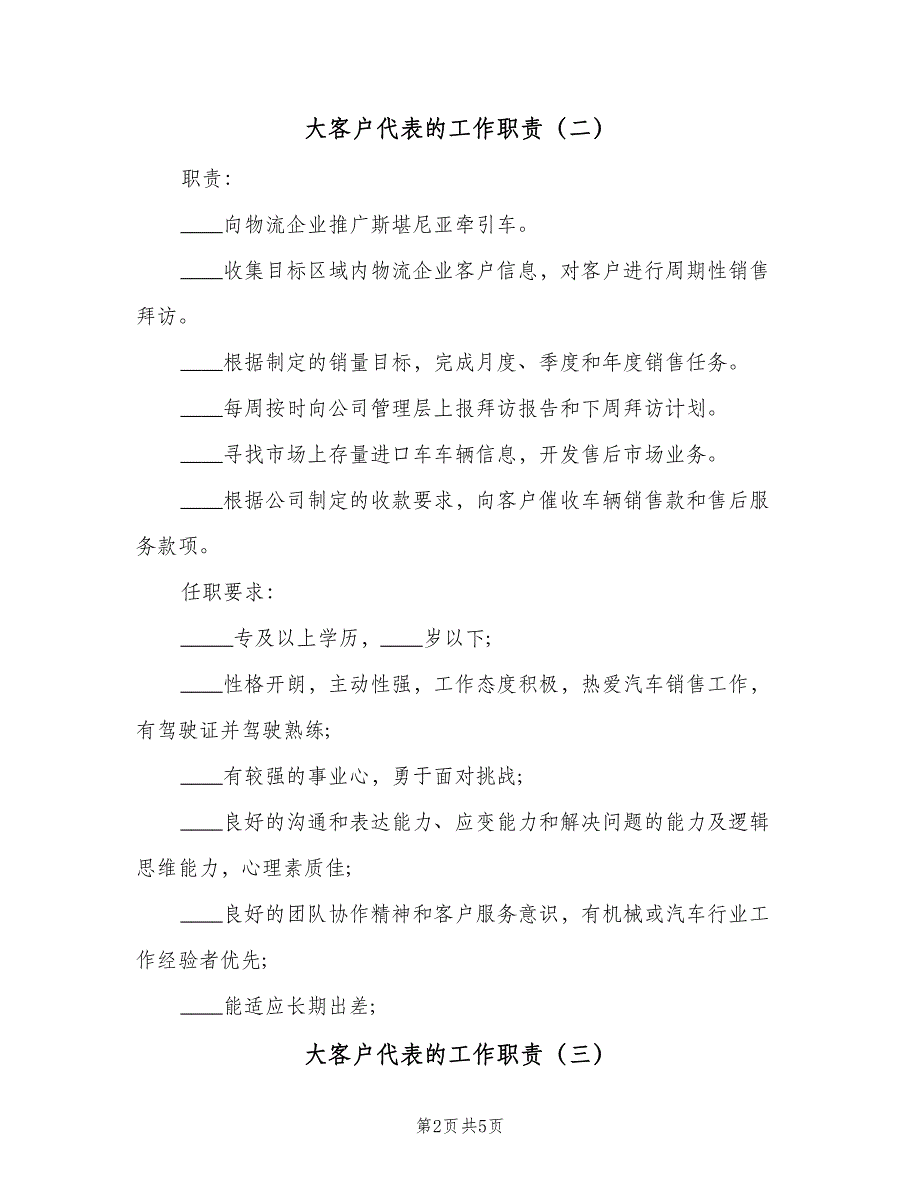 大客户代表的工作职责（二）
职责：
____向物流企业推广斯堪尼亚牵引车。
____收集目标区域内物流企业客户信息，对客户进行周期性销售
拜访。
____根据制定的销量目标，完成月度、季度和年度销售任务。
____每周按时向公司管理层上报拜访报告和下周拜访计划。
____寻找市场上存量进口车车辆信息，开发售后市场业务。
____根据公司制定的收款要求，向客户催收车辆销售款和售后服
务款项。
任职要求：
_____专及以上学历，____岁以下;
____性格开朗，主动性强，工作态度积极，热爱汽车销售工作，
有驾驶证并驾驶熟练;
____有较强的事业心，勇于面对挑战;
____良好的沟通和表达能力、应变能力和解决问题的能力及逻辑
思维能力，心理素质佳;
____良好的团队协作精神和客户服务意识，有机械或汽车行业工
作经验者优先;
____能适应长期出差;
大客户代表的工作职责（三）
第2页共5页